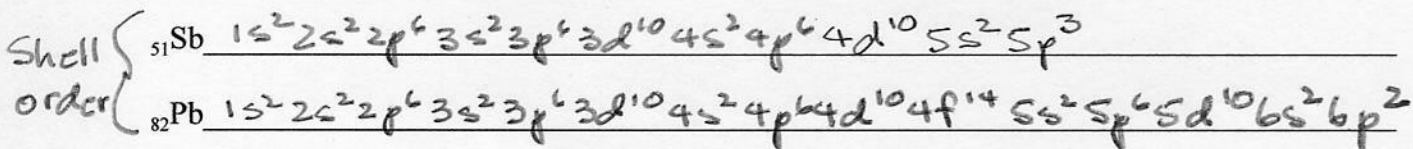 Shell order { ₅₁Sb 1s² 2s² 2p⁶ 3s² 3p⁶ 3d¹⁰ 4s² 4p⁶ 4d¹⁰ 5s² 5p³
₈₂Pb 1s² 2s² 2p⁶ 3s² 3p⁶ 3d¹⁰ 4s² 4p⁶ 4d¹⁰ 4f¹⁴ 5s² 5p⁶ 5d¹⁰ 6s² 6p²